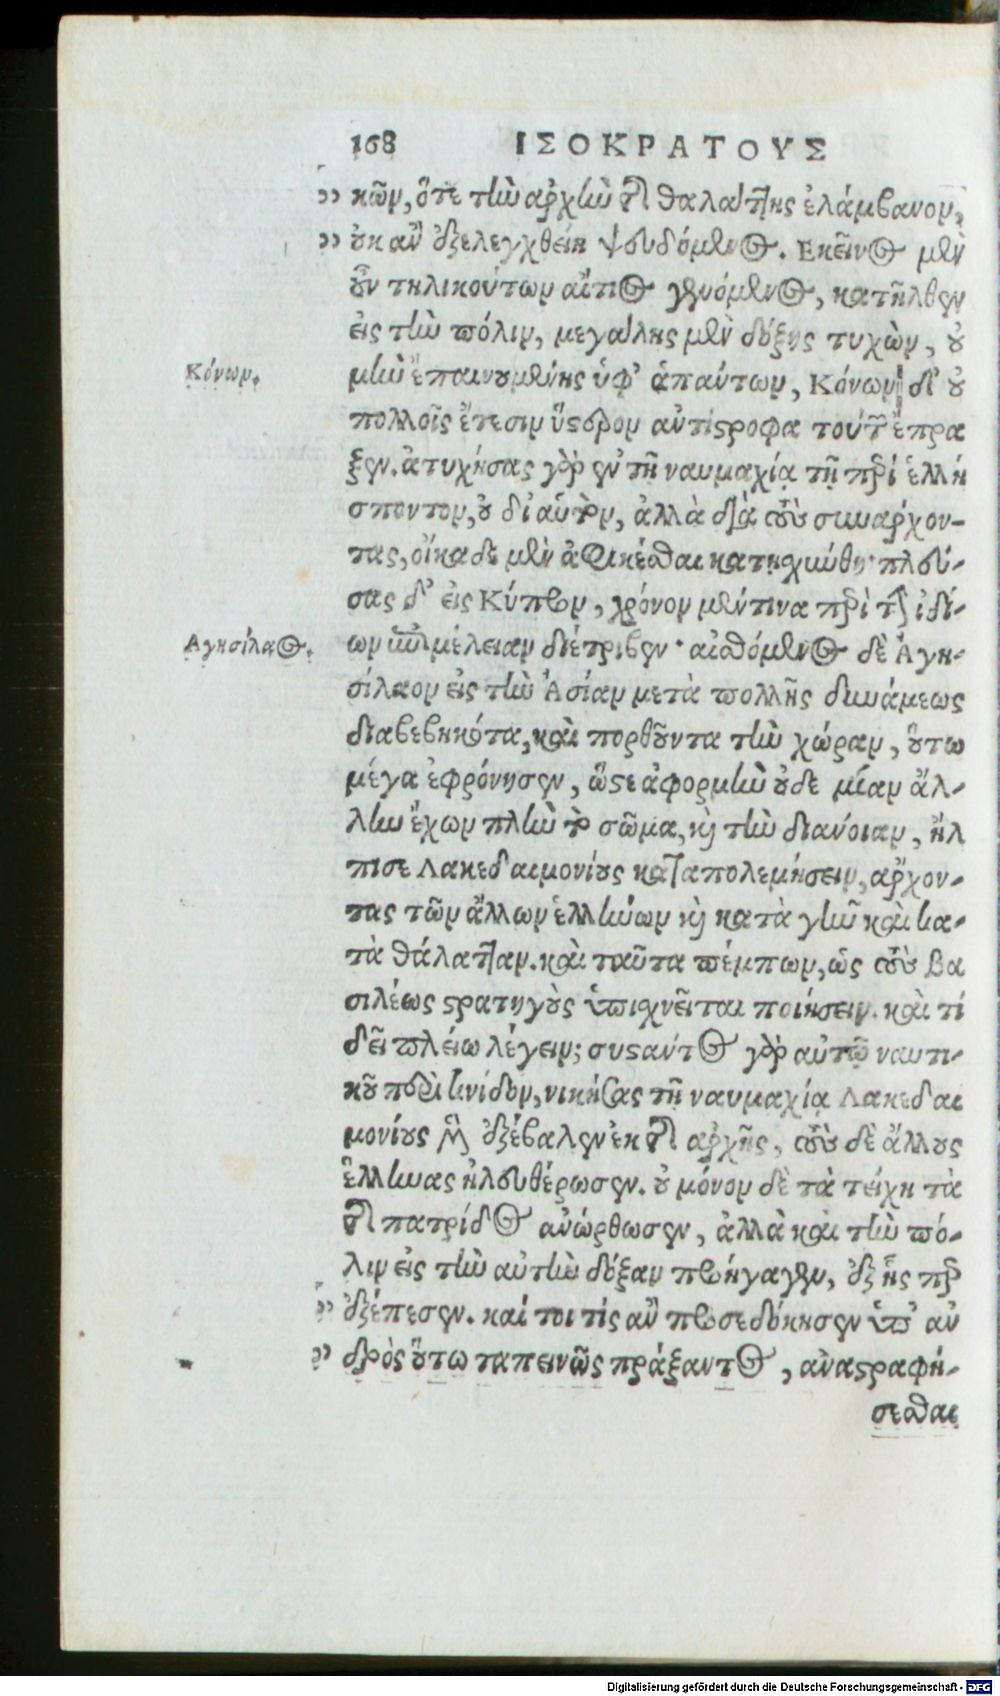 168 ΙΣΟΚΡΑΤΟΥΣ
„ κῶν, ὅτε τὴν ἀρχὴν τῆς θαλάττης ἐλάμβανον,
„ οὐκ ἂν ἐξελεγχθείη ψευδόμενος. Εκεῖνος μὲν
οὖν τηλικούτων αἴτιος γενόμενος, κατῆλθεν
εἰς τὴν πόλιν, μεγάλης μὲν δόξης τυχὼν, οὐ
Κόνων.
μὴν ἐπαινουμένης ὑφ' ἁπάντων, Κόνων δ' οὐ
πολλοῖς ἔτεσιν ὕστερον ἀντίστροφα τούτων ἔπρα
ξεν. ἀτυχήσας γὰρ ἐν τῇ ναυμαχίᾳ τῇ περὶ ἑλλή
σποντον, οὐ δι' αὑτὸν, ἀλλὰ διὰ τοὺς συνάρχον-
τας, οἴκαδε μὲν ἀφικέσθαι κατῃσχύνθη· πλεύ-
σας δ' εἰς Κύπρον, χρόνον μέν τινα περὶ τὴν τῶν ἰδί-
Αγησίλαος.
ων ἐπιμέλειαν διέτριβεν· αἰσθόμενος δὲ Ἀγη-
σίλαον εἰς τὴν Ἀσίαν μετὰ πολλῆς δυνάμεως
διαβεβηκότα, καὶ πορθοῦντα τὴν χώραν, οὕτω
μέγα ἐφρόνησεν, ὥστε ἀφορμὴν οὐδὲ μίαν ἄλ-
λην ἔχων πλὴν τὸ σῶμα, καὶ τὴν διάνοιαν, ἤλ
πισε Λακεδαιμονίους καταπολεμήσειν, ἄρχον-
τας τῶν ἄλλων ἑλλήνων καὶ κατὰ γῆν καὶ κα-
τὰ θάλατταν. καὶ ταῦτα πέμπων, ὡς τοὺς βα
σιλέως στρατηγοὺς ὑπισχνεῖται ποιήσειν. καὶ τί
δεῖ πλείω λέγειν; συστάντος γὰρ αὐτῷ ναυτι-
κοῦ περὶ κνίδον, νικήσας τῇ ναυμαχίᾳ Λακεδαι
μονίους μὲν ἐξέβαλεν ἐκ τῆς ἀρχῆς, τοὺς δὲ ἄλλους
ἕλληνας ἠλευθέρωσεν. οὐ μόνον δὲ τὰ τείχη τὰ
τῆς πατρίδος ἀνώρθωσεν, ἀλλὰ καὶ τὴν πό-
λιν εἰς τὴν αὐτὴν δόξαν προήγαγεν, ἐξ ἧς περ
„ ἐξέπεσεν. καί τοι τίς ἂν προσεδόκησεν ὑπ' ἀν
„ δρὸς οὕτω ταπεινῶς πράξαντος, ἀναστραφή-
σεσθαι
Digitalisierung gefördert durch die Deutsche Forschungsgemeinschaft - DFG